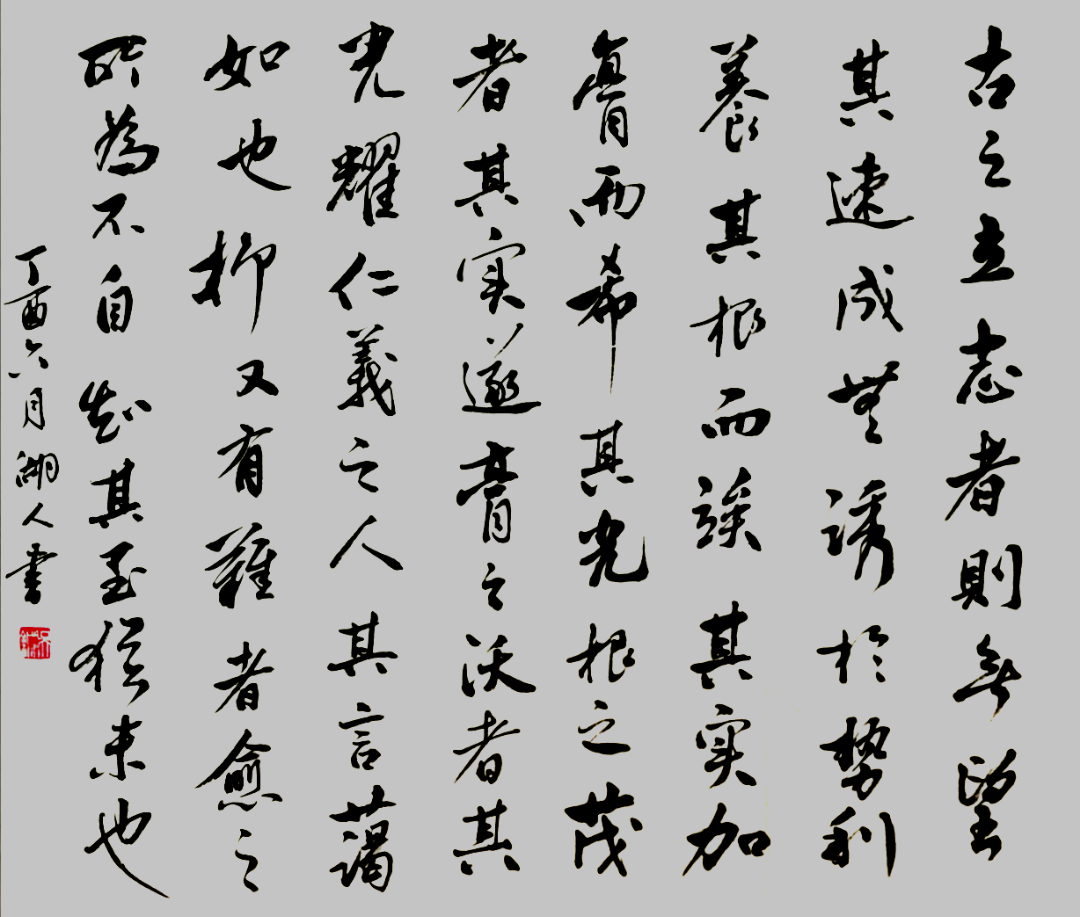 古之立志者則無望
其速成無誘於勢利
養其根而竢其实加
膏而希其光根之茂
者其实遂膏之沃者其
光耀仁義之人其言藹
如也抑又有難者愈之
所為不自知其至猶未也
丁酉六月湖人書